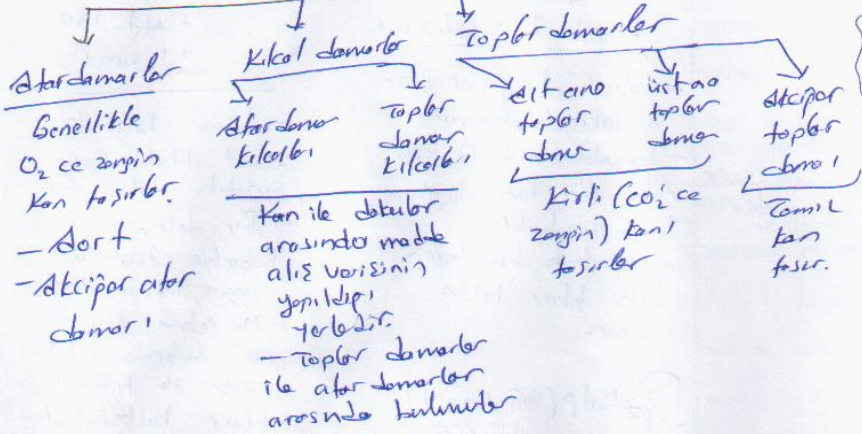 Atardamarlar
Genellikle
O₂ ce zengin
kan taşırlar.
- Aort
- Akciğer atar
damarı
Kılcal damarlar
Atardamar
kılcalları
Toplar
damar
kılcalları
Kan ile dokular
arasında madde
alış verişinin
yapıldığı
yerledir.
- Toplar damarlar
ile atar damarlar
arasında bulunurlar
Toplar damarlar
Alt ana
toplar
damar
üst ana
toplar
damar
Kirli (CO₂ ce
zengin) kanı
taşırlar
Akciğer
toplar
damarı
Temiz
kan
taşır.